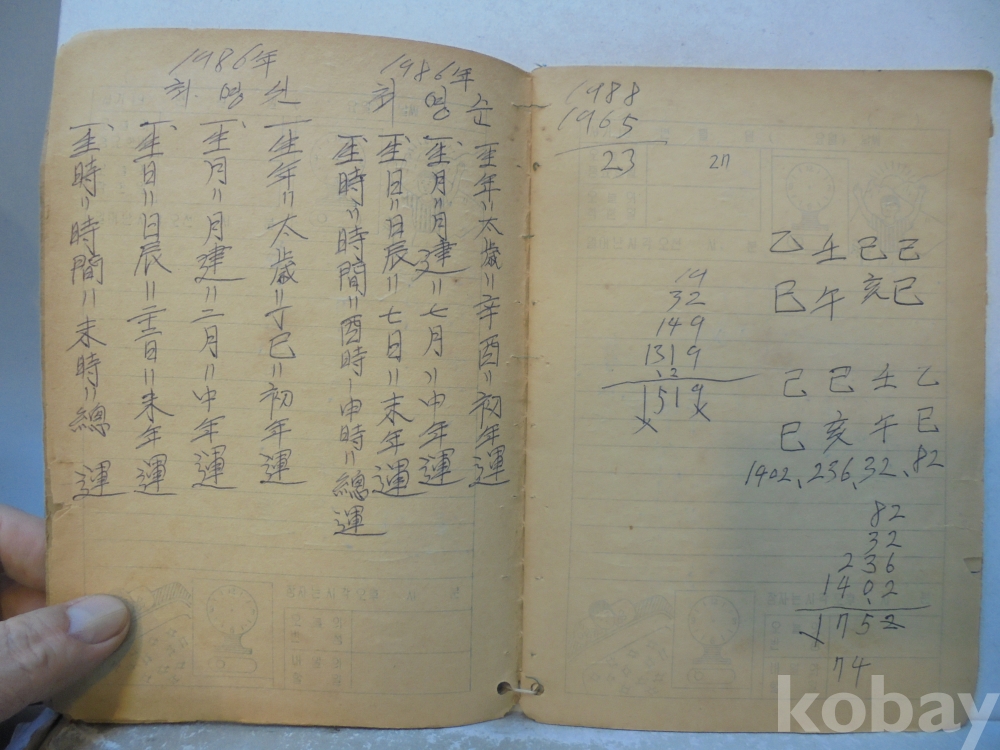 1986年
최 영 순
生年〃太歲〃辛酉〃初年運
生月〃月建〃七月〃中年運
生日〃日辰〃七日〃末年運
生時〃時間〃酉時-申時〃總運
1986年
최. 영
生年〃太歲〃丁巳〃初年運
生月〃月建〃二月〃中年運
生日〃日辰〃 〃末年運
生時〃時間〃末時〃總運
1988
1965
23
19
32
149
1319
1519
乙 壬 己 己
巳 午 亥 巳
己 巳 壬 乙
巳 亥 午 巳
1402, 236, 32, 82
82
32
236
1402
1752
74
kobay